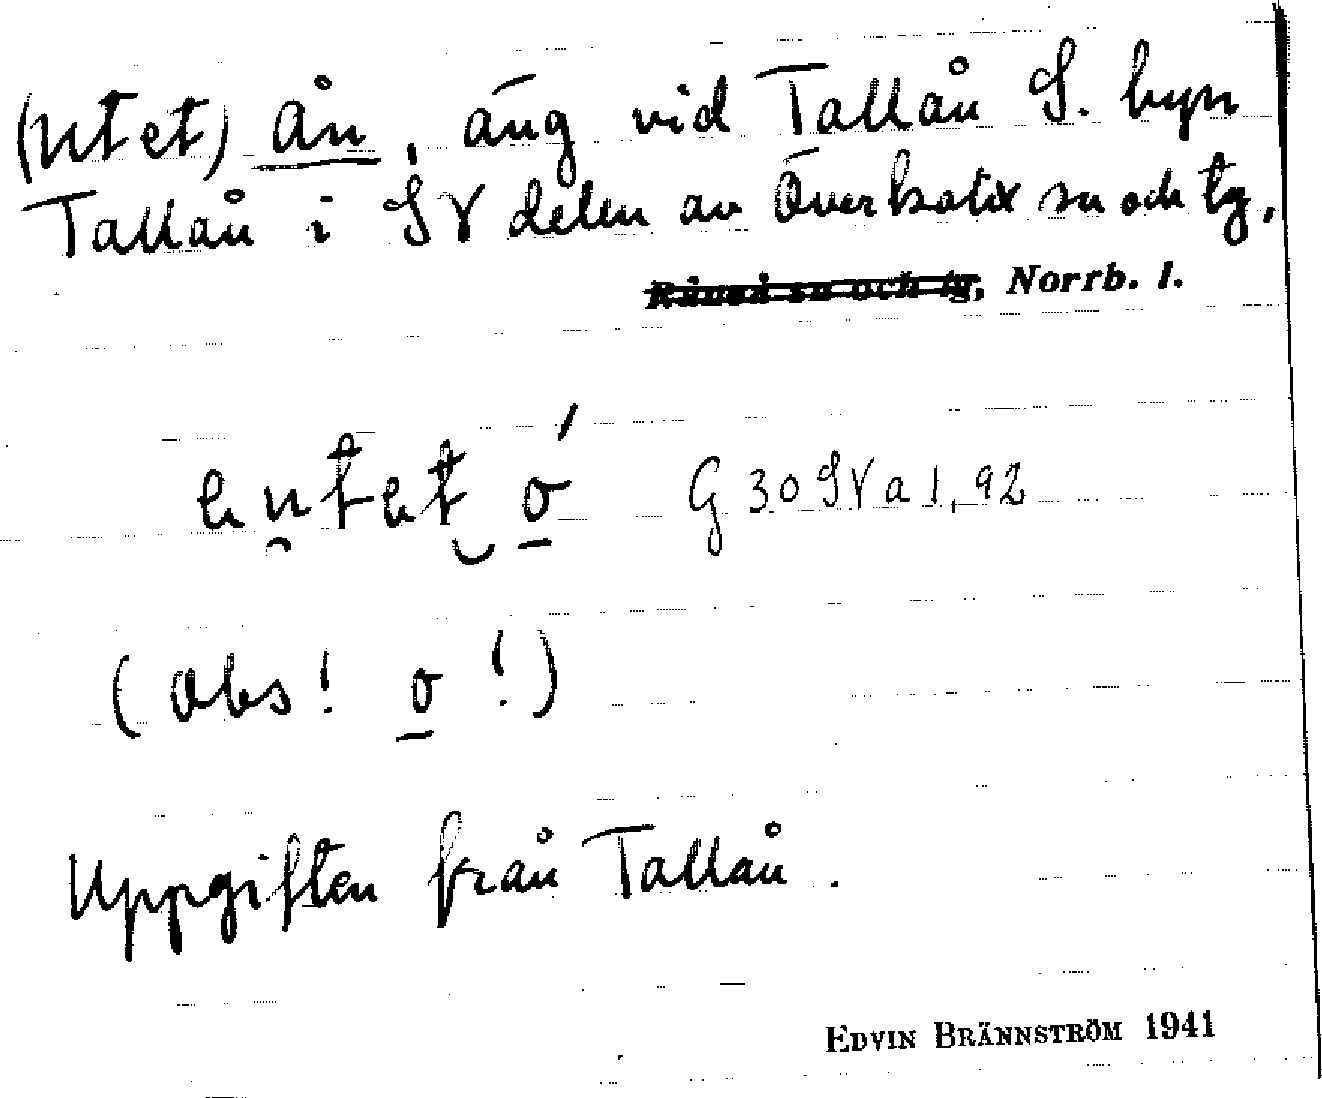 (utet) ån, äng vid Tallån S. byn
Tallån i SV delen av Överkalix sn och tg,
Råneå sn och tg, Norrb. l.
G 30 SV a 1, 92
(obs! o !)
Uppgiften från Tallån.
EDVIN BRÄNNSTRÖM 1941